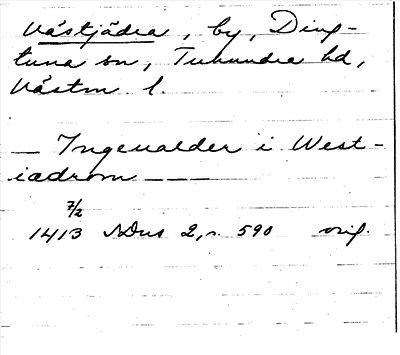 Västjädra, by, Ding-
tuna sn, Tuhundra hd,
Västm. l.
— Ingeualder i West-
iadrom — — —
7/2
1413 SDns 2, s. 590 orig.